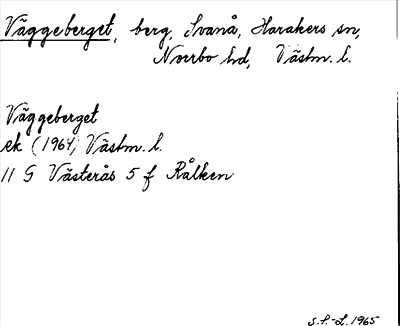 Väggeberget, berg, Svanå, Harakers sn,
Norrbo hd, Västm. l.
Väggeberget
ek (1964) Västm. l.
11 G Västerås 5 f Rålken
S.F.-L. 1965